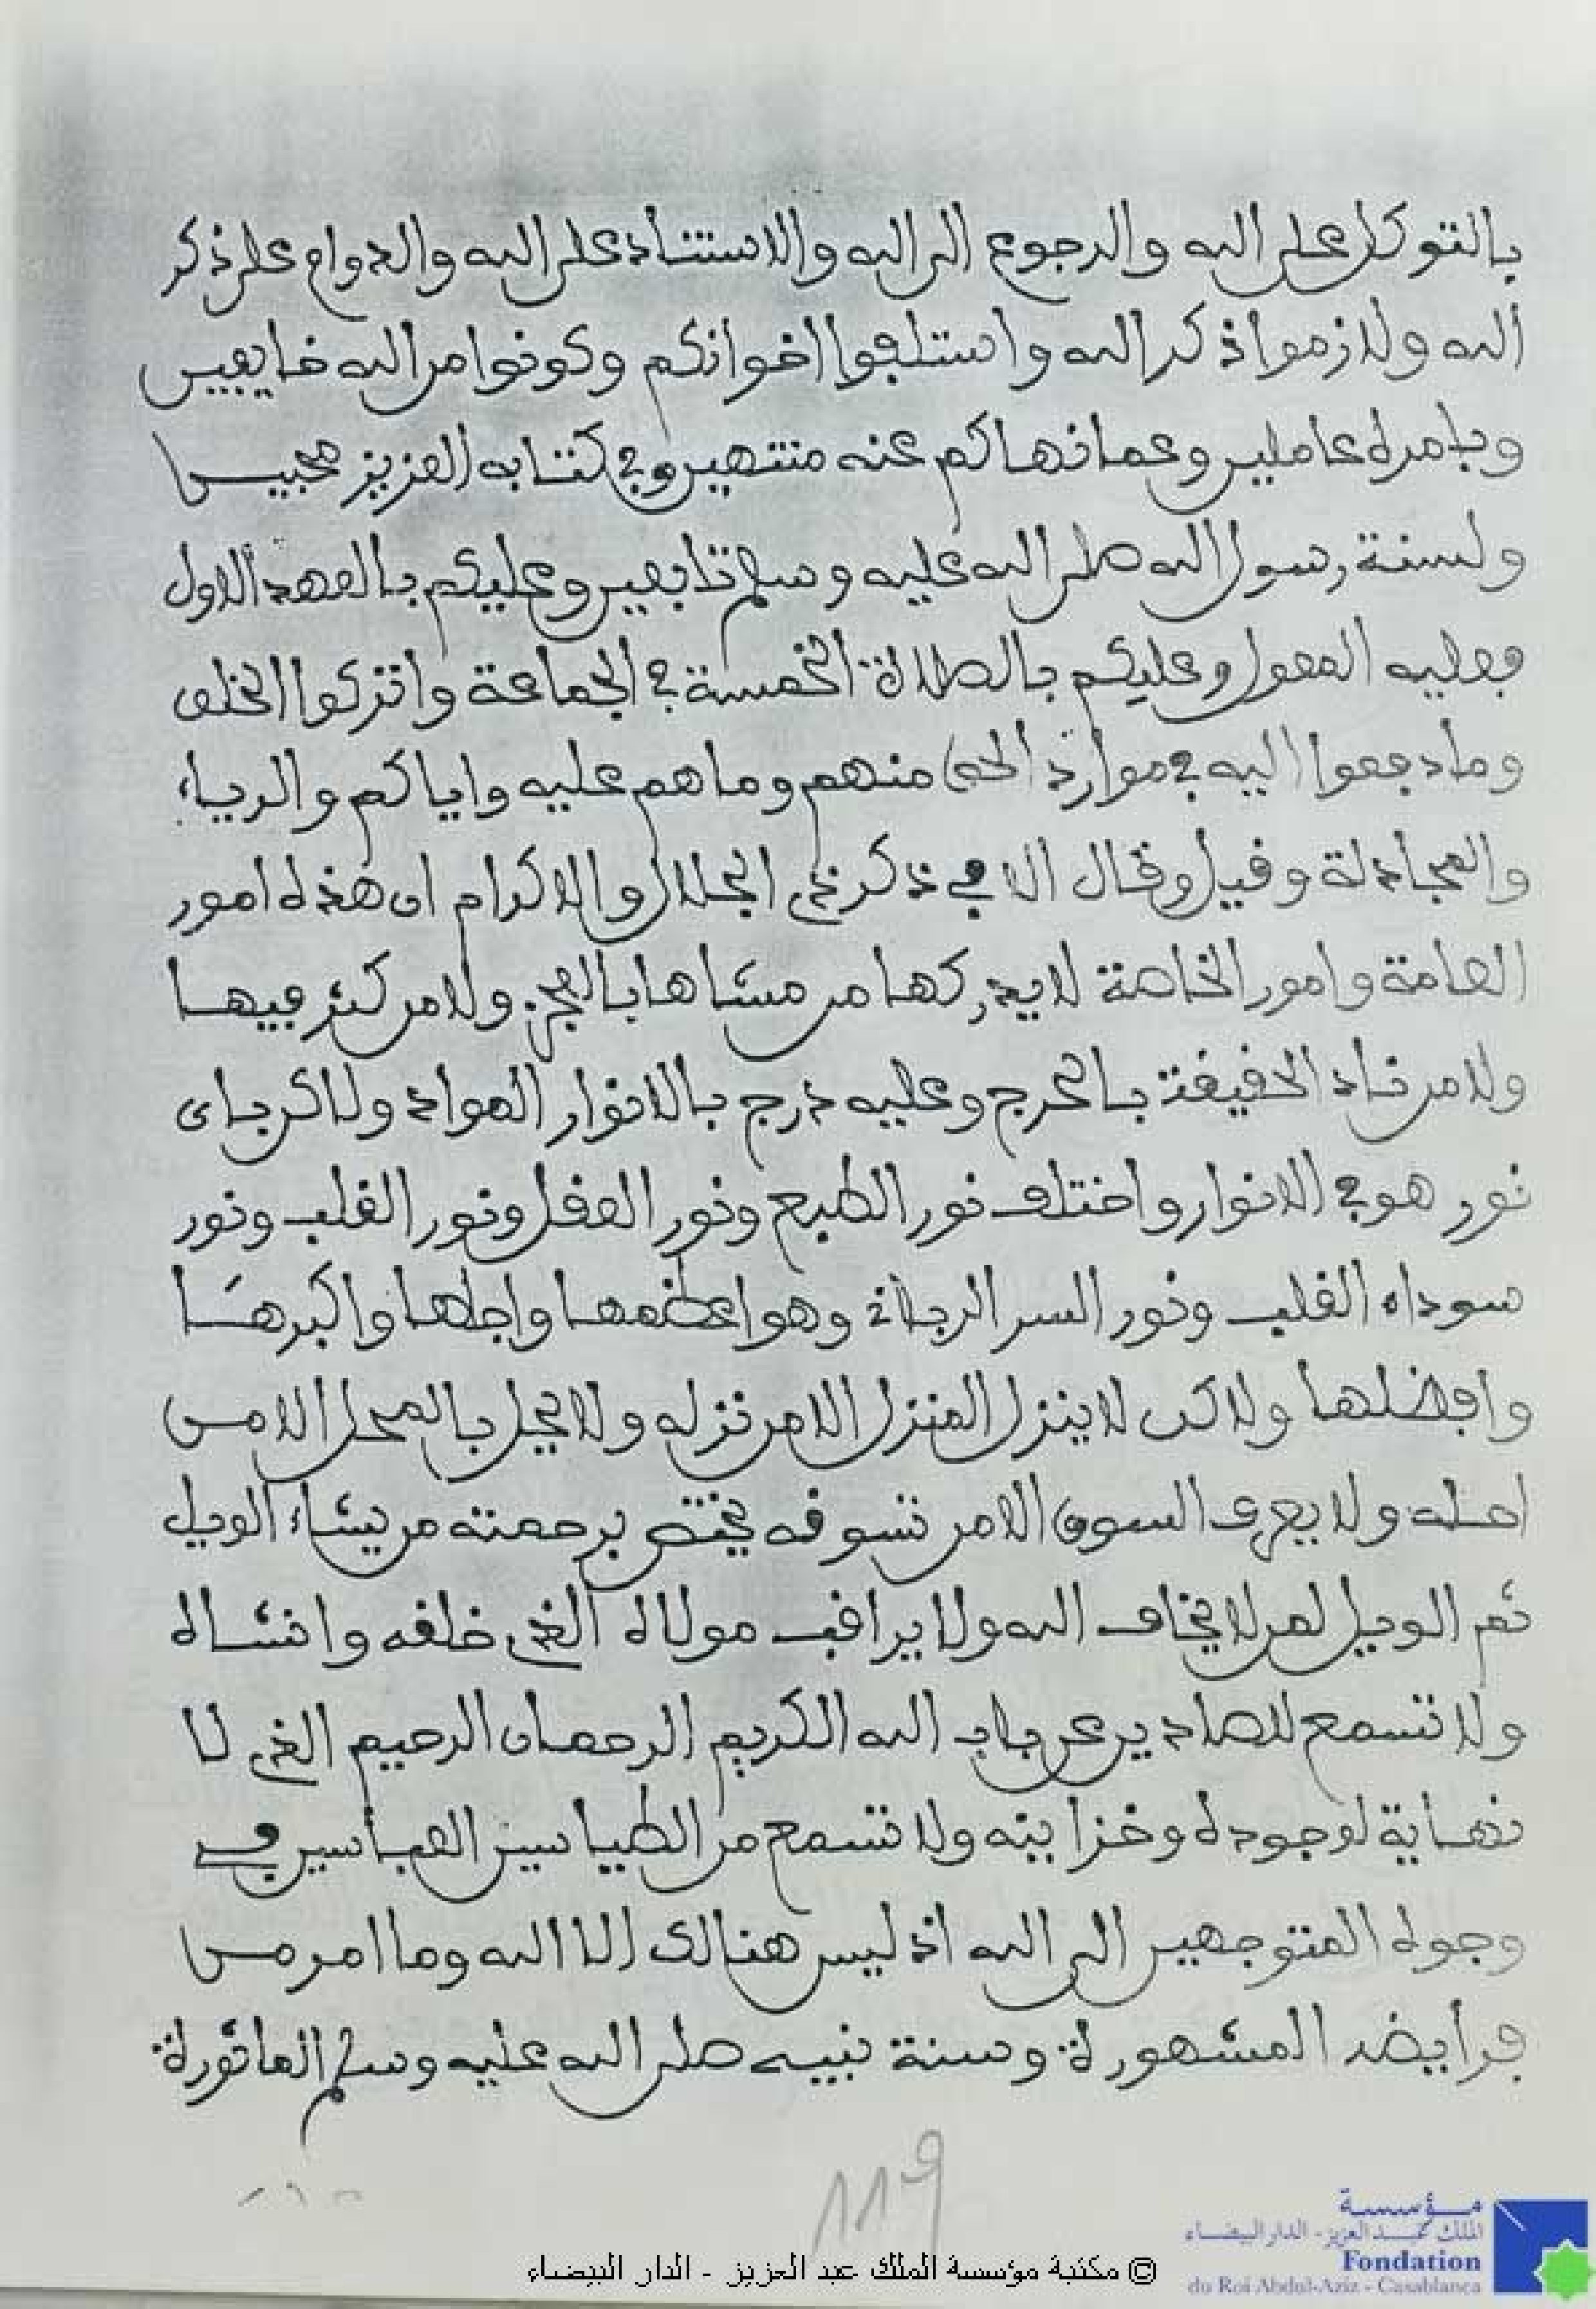 بالتوكل على الله والرجوع الى الله والاستناد على الله والدوام على ذكر
الله ولازموا ذكر الله واستلفوا اخوانكم وكونوا من الله خايفين
وبامره عاملين وعما نهاكم عنه منتهين وفي كتابه العزيز محبين
ولسنة رسول الله صلى الله عليه وسلم تابعين وعليكم بالعهد الاول
فعليه المعول وعليكم بالصلاة الخمسة في الجماعة واتركوا الخلق
وما دفعوا اليه في موارد الحق منهم وما هم عليه واياكم والرياء
والمجادلة وقيل وقال الا في ذكر ذي الجلال والاكرام ان هذه امور
العامة وامور الخاصة لا يدركها من مشاها بالعجز ولا من كثر فيها
ولا من ناد الحقيقة بالحرج وعليه درج بالانوار المواد ولاكن باى
نور هو في الانوار واختلف نور الطبع ونور العقل ونور القلب ونور
سوداه القلب ونور السر الرجاة وهو اعظمها واجلها واكبرها
وافضلها ولاكن لا ينزل المنزل الا من نزله ولا يحل بالمحل الا من
احله ولا يعرف السوق الا من تسوقه يختص برحمته من يشاء الويل
ثم الويل لمن لا يخاف الله ولا يراقب مولاه الذي خلقه وانشاه
ولا تسمع للصادين عن باب الله الكريم الرحمان الرحيم الذي لا
نهاية لوجوده وخزاينه ولا تسمع من الطياسين العباسين في
وجوه المتوجهين الى الله اذ ليس هنالك الا الله وما امر من
فرايضه المشهورة وسنة نبيه صلى الله عليه وسلم الماثورة
119
© مكتبة مؤسسة الملك عبد العزيز - الدار البيضاء
مؤسسة
الملك عبد العزيز - الدار البيضاء
Fondation
du Roi Abdul-Aziz - Casablanca